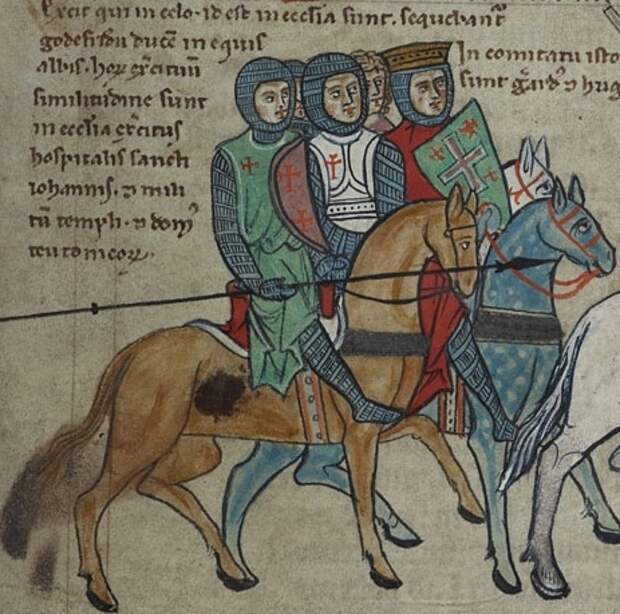 Excit qui in celo · id est in ecclia sunt. sequebant᷑
godefridu ducē in equis
albis. hoꝝ exercituū
similitudine sunt
in ecclia exercitus
hospitalis sancti
iohannis. ⁊ mili
tū templi. ⁊ domꝰ
teutonicoꝝ.
In comitatu isto
sunt ⁊ hug